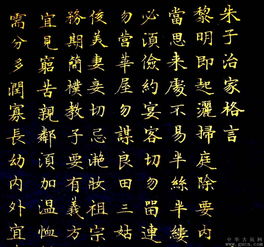 朱子治家格言
黎明即起灑掃庭除要內
當思來處不易半絲半縷
必須儉約宴客切勿畱連
勿營華屋勿謀良田三姑
俊美妻妾切忌艷妝祖宗
務期簡樸教子要有義方
宜見窮苦親鄰須加溫恤
需分多潤寡長幼內外宜